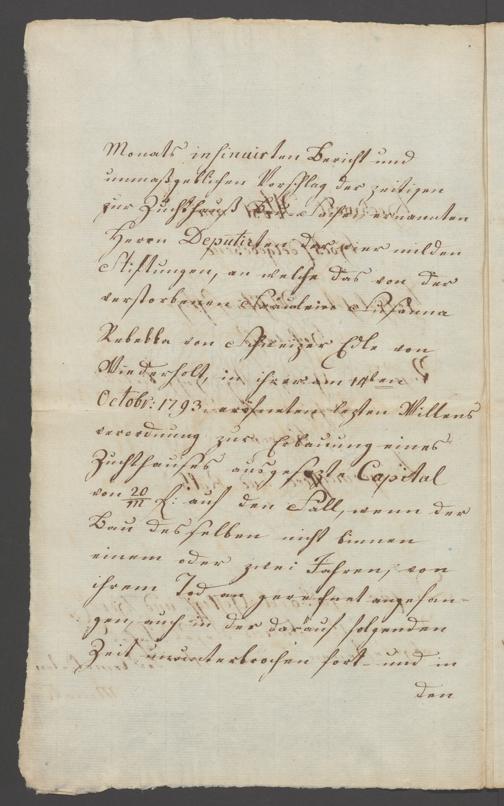 Monats insinuirten Bericht und
unmaßgeblichen Vorschlag der zeitigen
zur Zuchthauß ernannten
Herrn Deputirten der vier milden
Stiftungen, an welche das von der
verstorbenen Fräulein Susanna
Rebekka von Schweizer Edle von
Wiederholt, in ihrer am 14ten
Octobr: 1793. eröfneten lezten Willens
verordnung zur Erbauung eines
Zuchthauses ausgesezte Capital
von 20/m f: auf den Fall, wenn der
Bau desselben nicht binnen
einem oder zwei Jahren, von
ihrem Tod an gerechnet angefan-
gen, auch in der darauf folgenden
Zeit ununterbrochen fort- und in
den